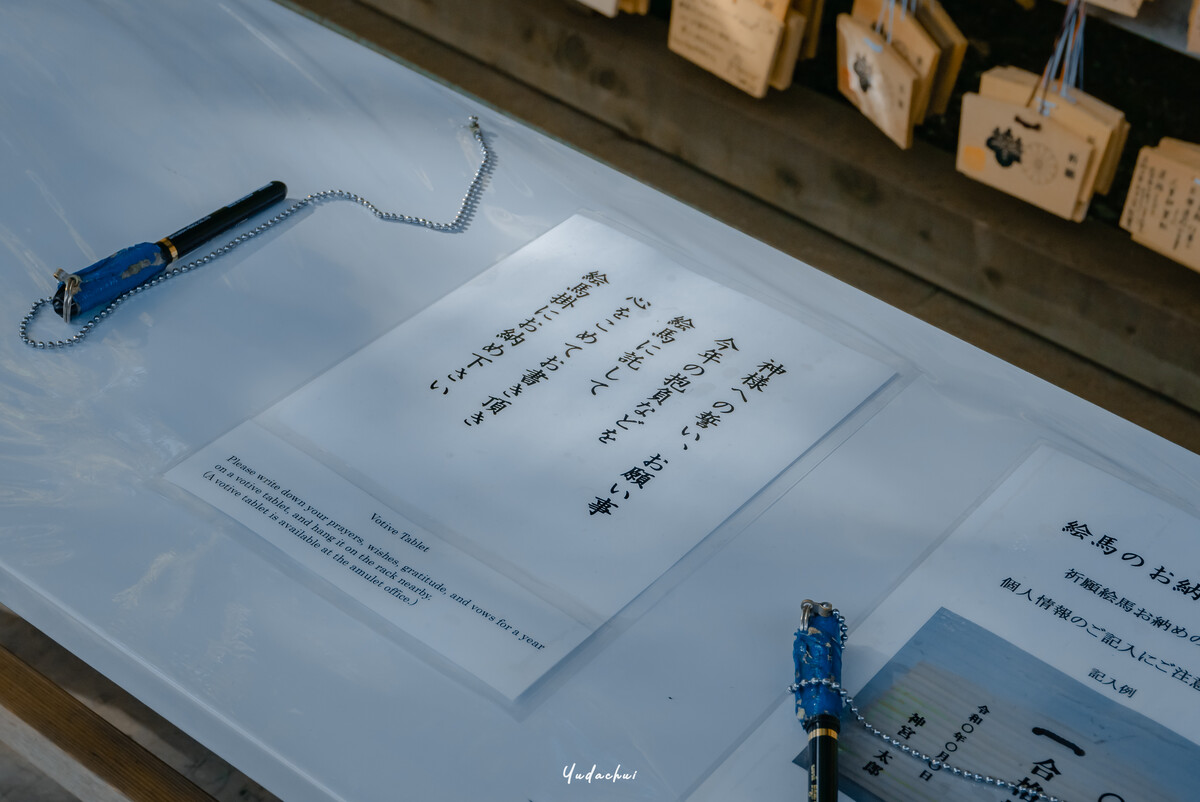 神様への誓い、お願い事
今年の抱負などを
絵馬に託して
心をこめてお書き頂き
絵馬掛にお納め下さい
Votive Tablet
Please write down your prayers, wishes, gratitude, and vows for a year
on a votive tablet, and hang it on the rack nearby.
(A votive tablet is available at the amulet office.)
絵馬のお納
祈願絵馬お納めの
個人情報のご記入にご注意
記入例
一合格
令和〇年〇月〇日
神宮太郎
Yudachui